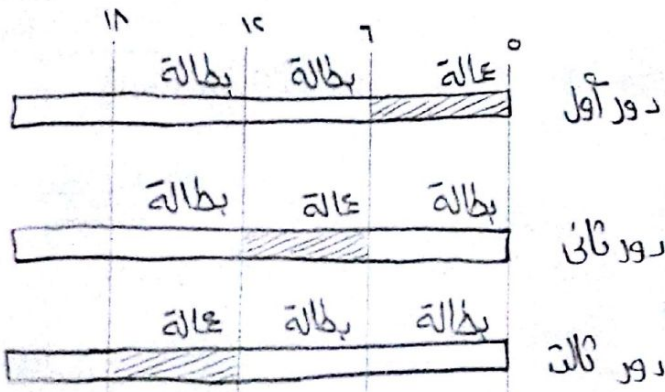 ٠ ٦ ١٢ ١٨
دور أول عمالة بطالة بطالة
دور ثانى بطالة عمالة بطالة
دور ثالث بطالة بطالة عمالة